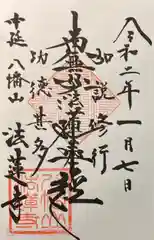 令和二年一月七日
如説修行
南無妙法蓮華経
功徳甚多
中延 八幡山
法蓮寺